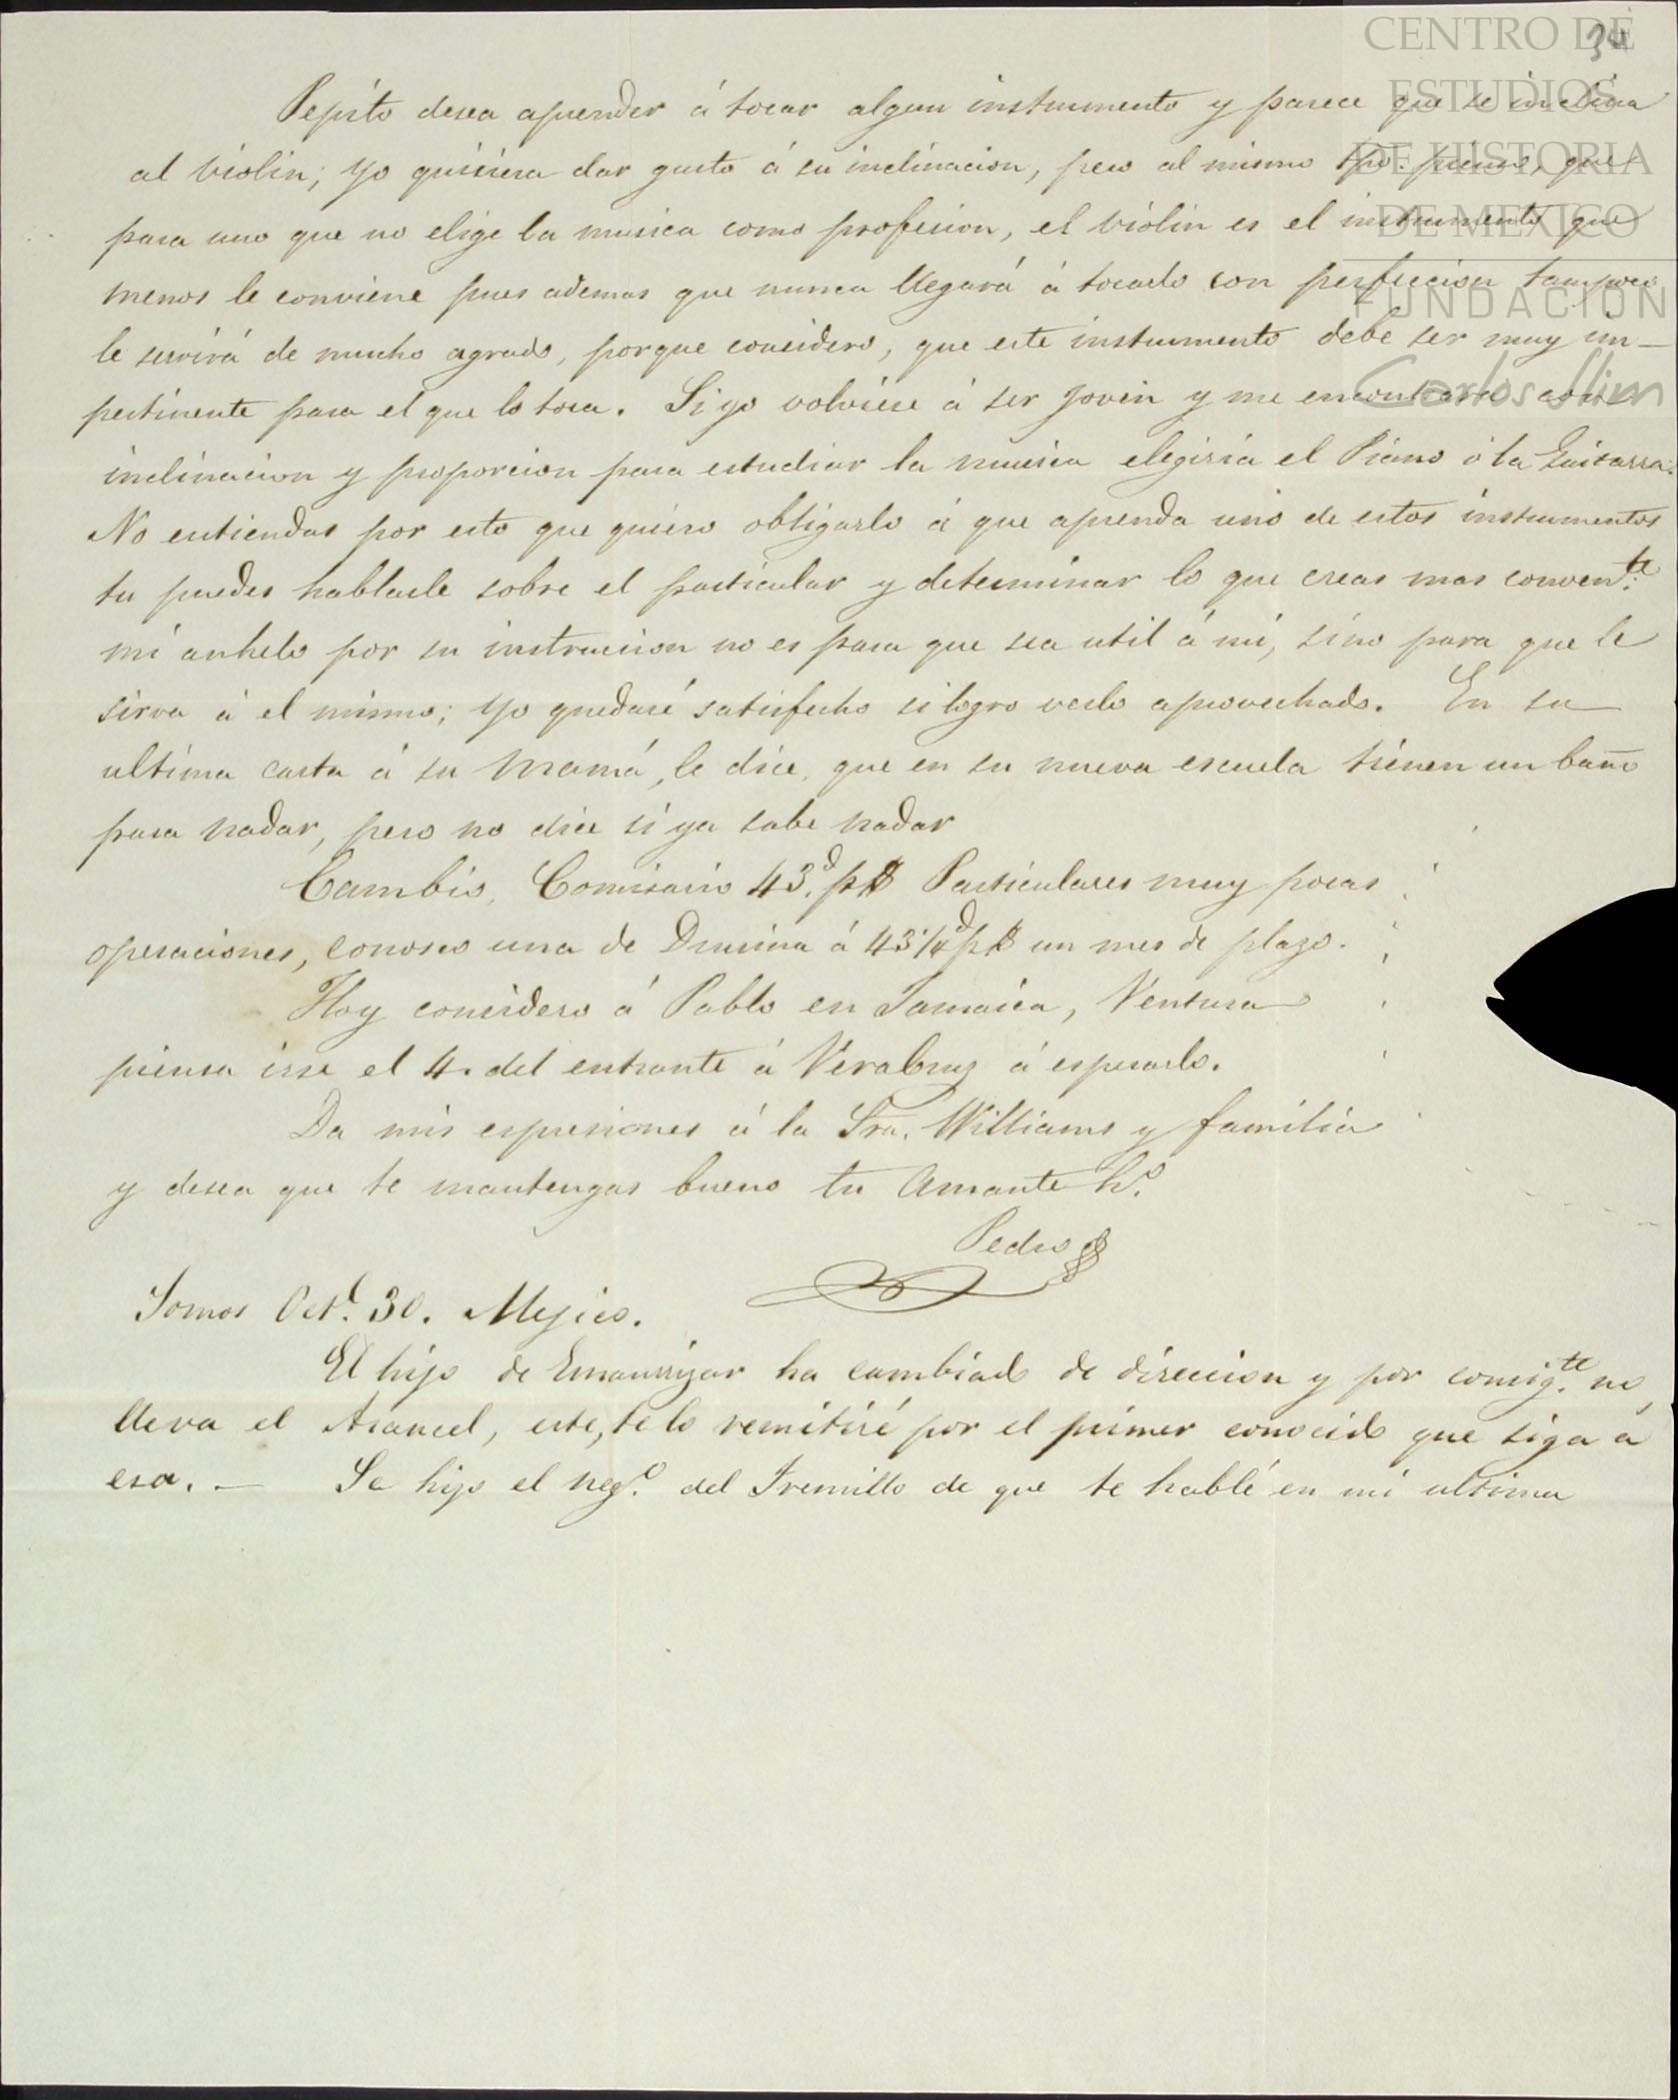 34
CENTRO DE
ESTUDIOS
DE HISTORIA
DE MEXICO
FUNDACION
Carlos Slim
Pepito desea aprender á tocar algun instrumento y parece que se inclina
al violin; yo quisiera dar gusto á su inclinacion, pero al mismo tpo. pienso, que
para uno que no elige la musica como profesion, el violin es el instrumento que
menos le conviene pues ademas que nunca llegará á tocarlo con perfeccion tampoco
le servirá de mucho agrado, porque considero, que este instrumento debe ser muy im-
pertinente para el que lo toca. Si yo volviese á ser joven y me encontrara con
inclinacion y proporcion para estudiar la musica elegiria el Piano ó la Guitarra.
No entiendas por esto que quiero obligarlo á que aprenda uno de estos instrumentos
tu puedes hablarle sobre el particular y determinar lo que creas mas convente.
mi anhelo por su instruccion no es para que sea util á mi, sino para que le
sirva á el mismo; yo quedaré satisfecho si logro verlo aprovechado. En su
ultima carta á su Mamá, le dice, que en su nueva escuela tienen un baño
para nadar, pero no dice si ya sabe nadar
Cambio, Comisario 43d. p$ Particulares muy pocas
operaciones, conosco una de Drusina á 43 1/4d p$ un mes de plazo.
Hoy considero á Pablo en Jamaica, Ventura
piensa irse el 4. del entrante á VeraCruz á esperarlo.
Da mis espresiones á la Sra. Williams y familia
y desea que te mantengas bueno tu Amante ho.
Pedro
Somos Oct. 30. Mejico.
El hijo de ha cambiado de direccion y por consigte. no
lleva el Arancel, este, te lo remitiré por el primer conocido que siga á
esa. — Se hijo el nego. del Fresnillo de que te hablé en mi ultima